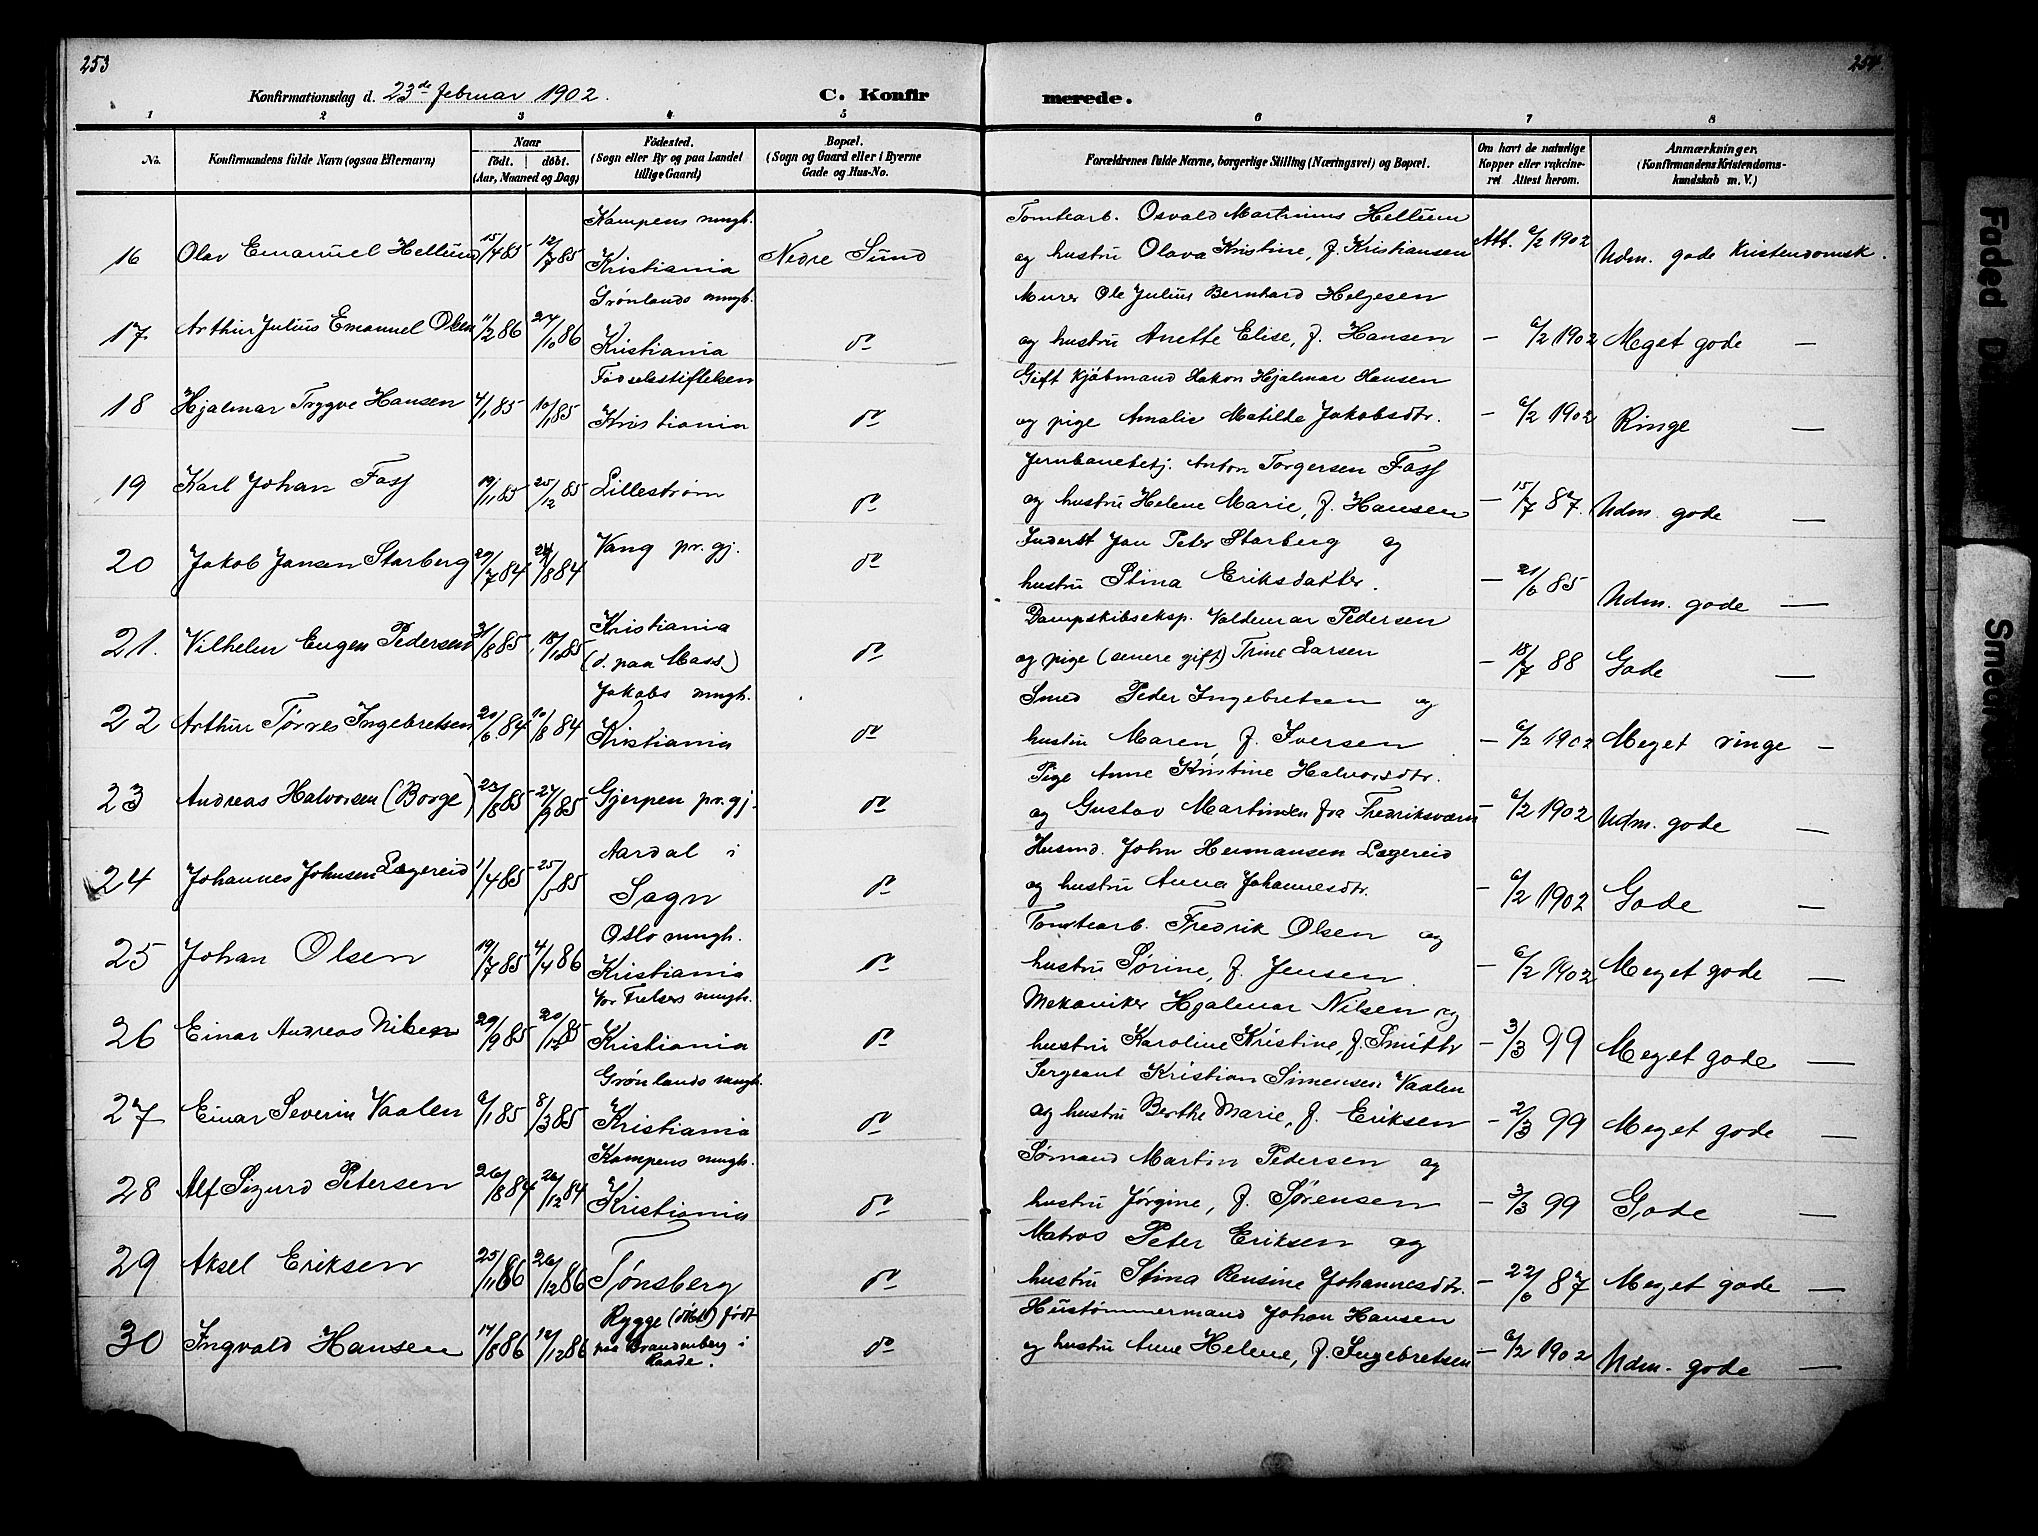 253
254
Konfirmationsdag d. 23de februar 1902.
C. Konfirmerede.
1 2 3 4 5 6 7 8
No.
Konfirmandens fulde Navn (ogsaa Efternavn)
Naar
født. døbt.
(Aar, Maaned og Dag)
Fødested.
(Sogn eller By og paa Landet
tillige Gaard)
Bopæl.
(Sogn og Gaard eller i Byerne
Gade og Hus-No.
Forældrenes fulde Navne, borgerlige Stilling (Næringsvei) og Bopæl.
Om havt de naturlige
Kopper eller vakcine-
ret Attest herom.
Anmærkninger.
(Konfirmandens Kristendoms-
kundskab m. V.)
Kampens mngh. Tomtearb. Osvald Martinius Hellum
16 Olav Emanuel Hellum 15/4 85 12/7 85 Kristiania Nedre Sund og hustru Olava Kristine, f. Kristiansen Att. 6/2 1902 Udm. gode Kristendomsk.
Grønlands mngh. Murer Ole Julius Bernhard Helgesen
17 Arthur Julius Emanuel Olsen 11/2 86 24/10 86 Kristiania do og hustru Anette Elise, f. Hansen – 6/2 1902 Meget gode —
Fødselsstiftelsen Gift Kjøbmand Hakon Hjalmar Hansen
18 Hjalmar Trygve Hansen 4/1 85 10/1 85 Kristiania do og pige Amalie Matilde Jakobsdtr. – 6/2 1902 Ringe —
Jernbanebetj. Anton Torgersen Foss
19 Karl Johan Foss 19/11 85 25/12 85 Lillestrøm do og hustru Helene Marie, f. Hansen – 15/7 87. Udm. gode —
Inderst Jan Peter Starberg og
20 Jakob Jansen Starberg 29/7 84 24/8 84 Vang pr. gj. do hustru Stina Eriksdatter. – 21/6 85 Udm. gode —
Kristiania Dampskibseksp. Valdemar Pedersen
21. Vilhelm Eugen Pedersen 31/8 85 18/10 85 (d. paa Moss) do og pige (senere gift) Trine Larsen – 18/7 88 Gode —
Jakobs mngh. Smed Peder Ingebretsen og
22 Arthur Tørres Ingebretsen 20/6. 84 10/8 84 Kristiania do hustru Maren, f. Iversen – 6/2 1902 Meget ringe –
Pige Anne Kristine Halvorsdtr.
23 Andreas Halvorsen (Borge) 23/8 85 27/9 85 Gjerpen pr. gj. do og Gustav Martinsen fra Fredriksværn – 6/2 1902 Udm. gode —
Aardal i Husmd. John Hermansen Lægereid
24 Johannes Johnsen Lægereid 1/4 85 25/5 85 Sogn do og hustru Anna Johannesdtr. – 6/2 1902 Gode —
Oslo mngh. Tomtearb. Fredrik Olsen og
25 Johan Olsen 19/7 85 4/4 86 Kristiania do hustru Sørine, f. Jensen. – 6/2 1902 Meget gode —
Vor Frelsers mngh. Mekaniker Hjalmar Nilsen og
26 Einar Andreas Nilsen 29/9 85 20/12 85 Kristiania do hustru Karoline Kristine, f. Smith – 3/3 99 Meget gode —
Grønlands mngh. Sergeant Kristian Simensen Vaalen
27 Einar Severin Vaalen 6/1 85 8/3 85 Kristiania do og hustru Berthe Marie, f. Eriksen – 2/3 99 Meget gode —
Kampens mngh. Sømand Martin Pedersen og
28 Alf Sigurd Petersen 26/8 84 26/12 84 Kristiania do hustru Jørgine, f. Sørensen – 3/3 99 Gode —
Matros Peter Eriksen og
29 Aksel Eriksen 25/11 86 26/12 86 Tønsberg do hustru Stina Rensine Johannesdtr. – 22/6 87 Meget gode —
Rygge (døbt) født Hustømmermand Johan Hansen
30 Ingvald Hansen 14/8 86 12/12 86 paa Brandenberg i Raade. do og hustru Anne Helene, f. Ingebretsen – 6/2 1902 Udm. gode —
Faded